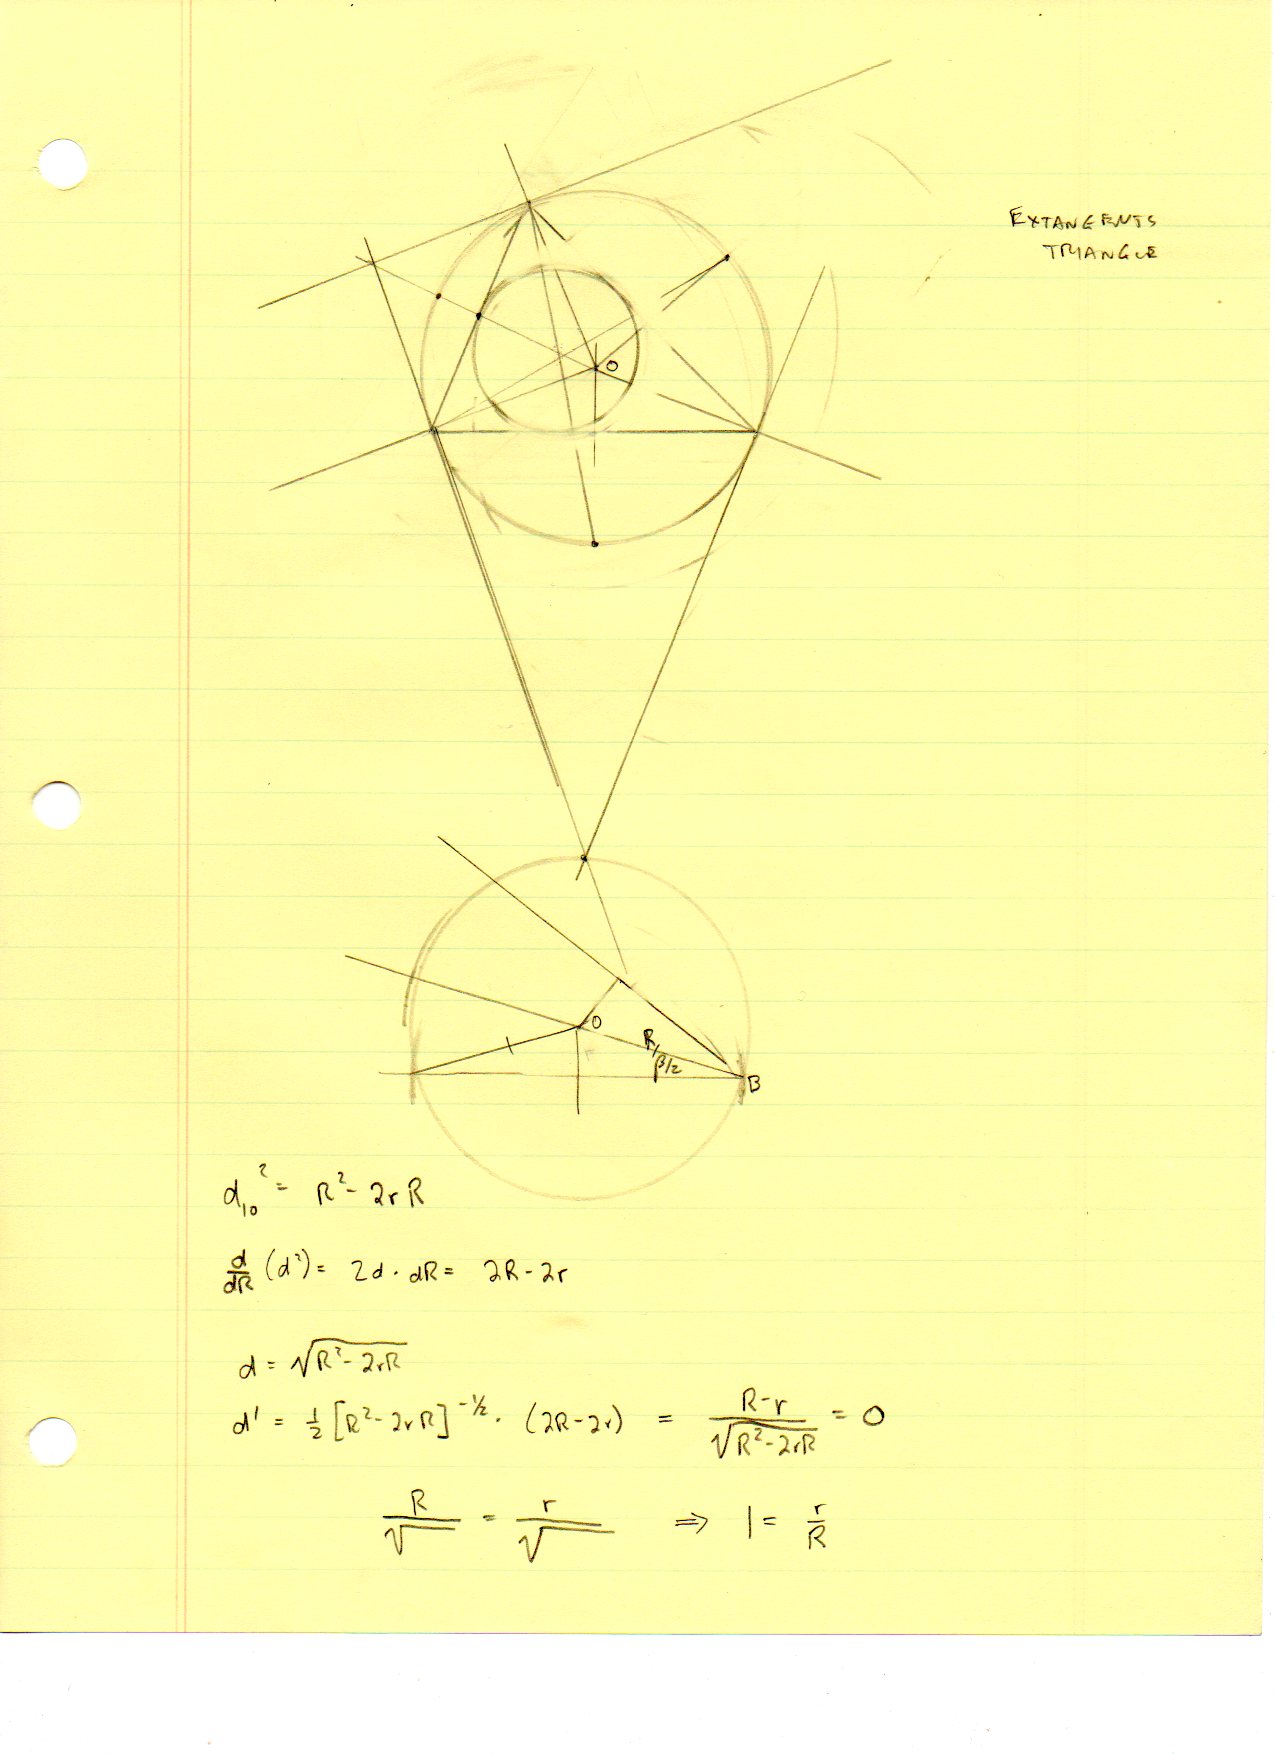 EXTANGENTS
TRIANGLE
O
O
R/
β/2
B
d₁₀² = R² - 2rR
d/dR (d²) = 2d · dR = 2R - 2r
d = √(R² - 2rR)
d' = ½ [R² - 2rR]^(-½) · (2R - 2r) = (R - r)/√(R² - 2rR) = 0
R/√ = r/√ ⇒ 1 = r/R